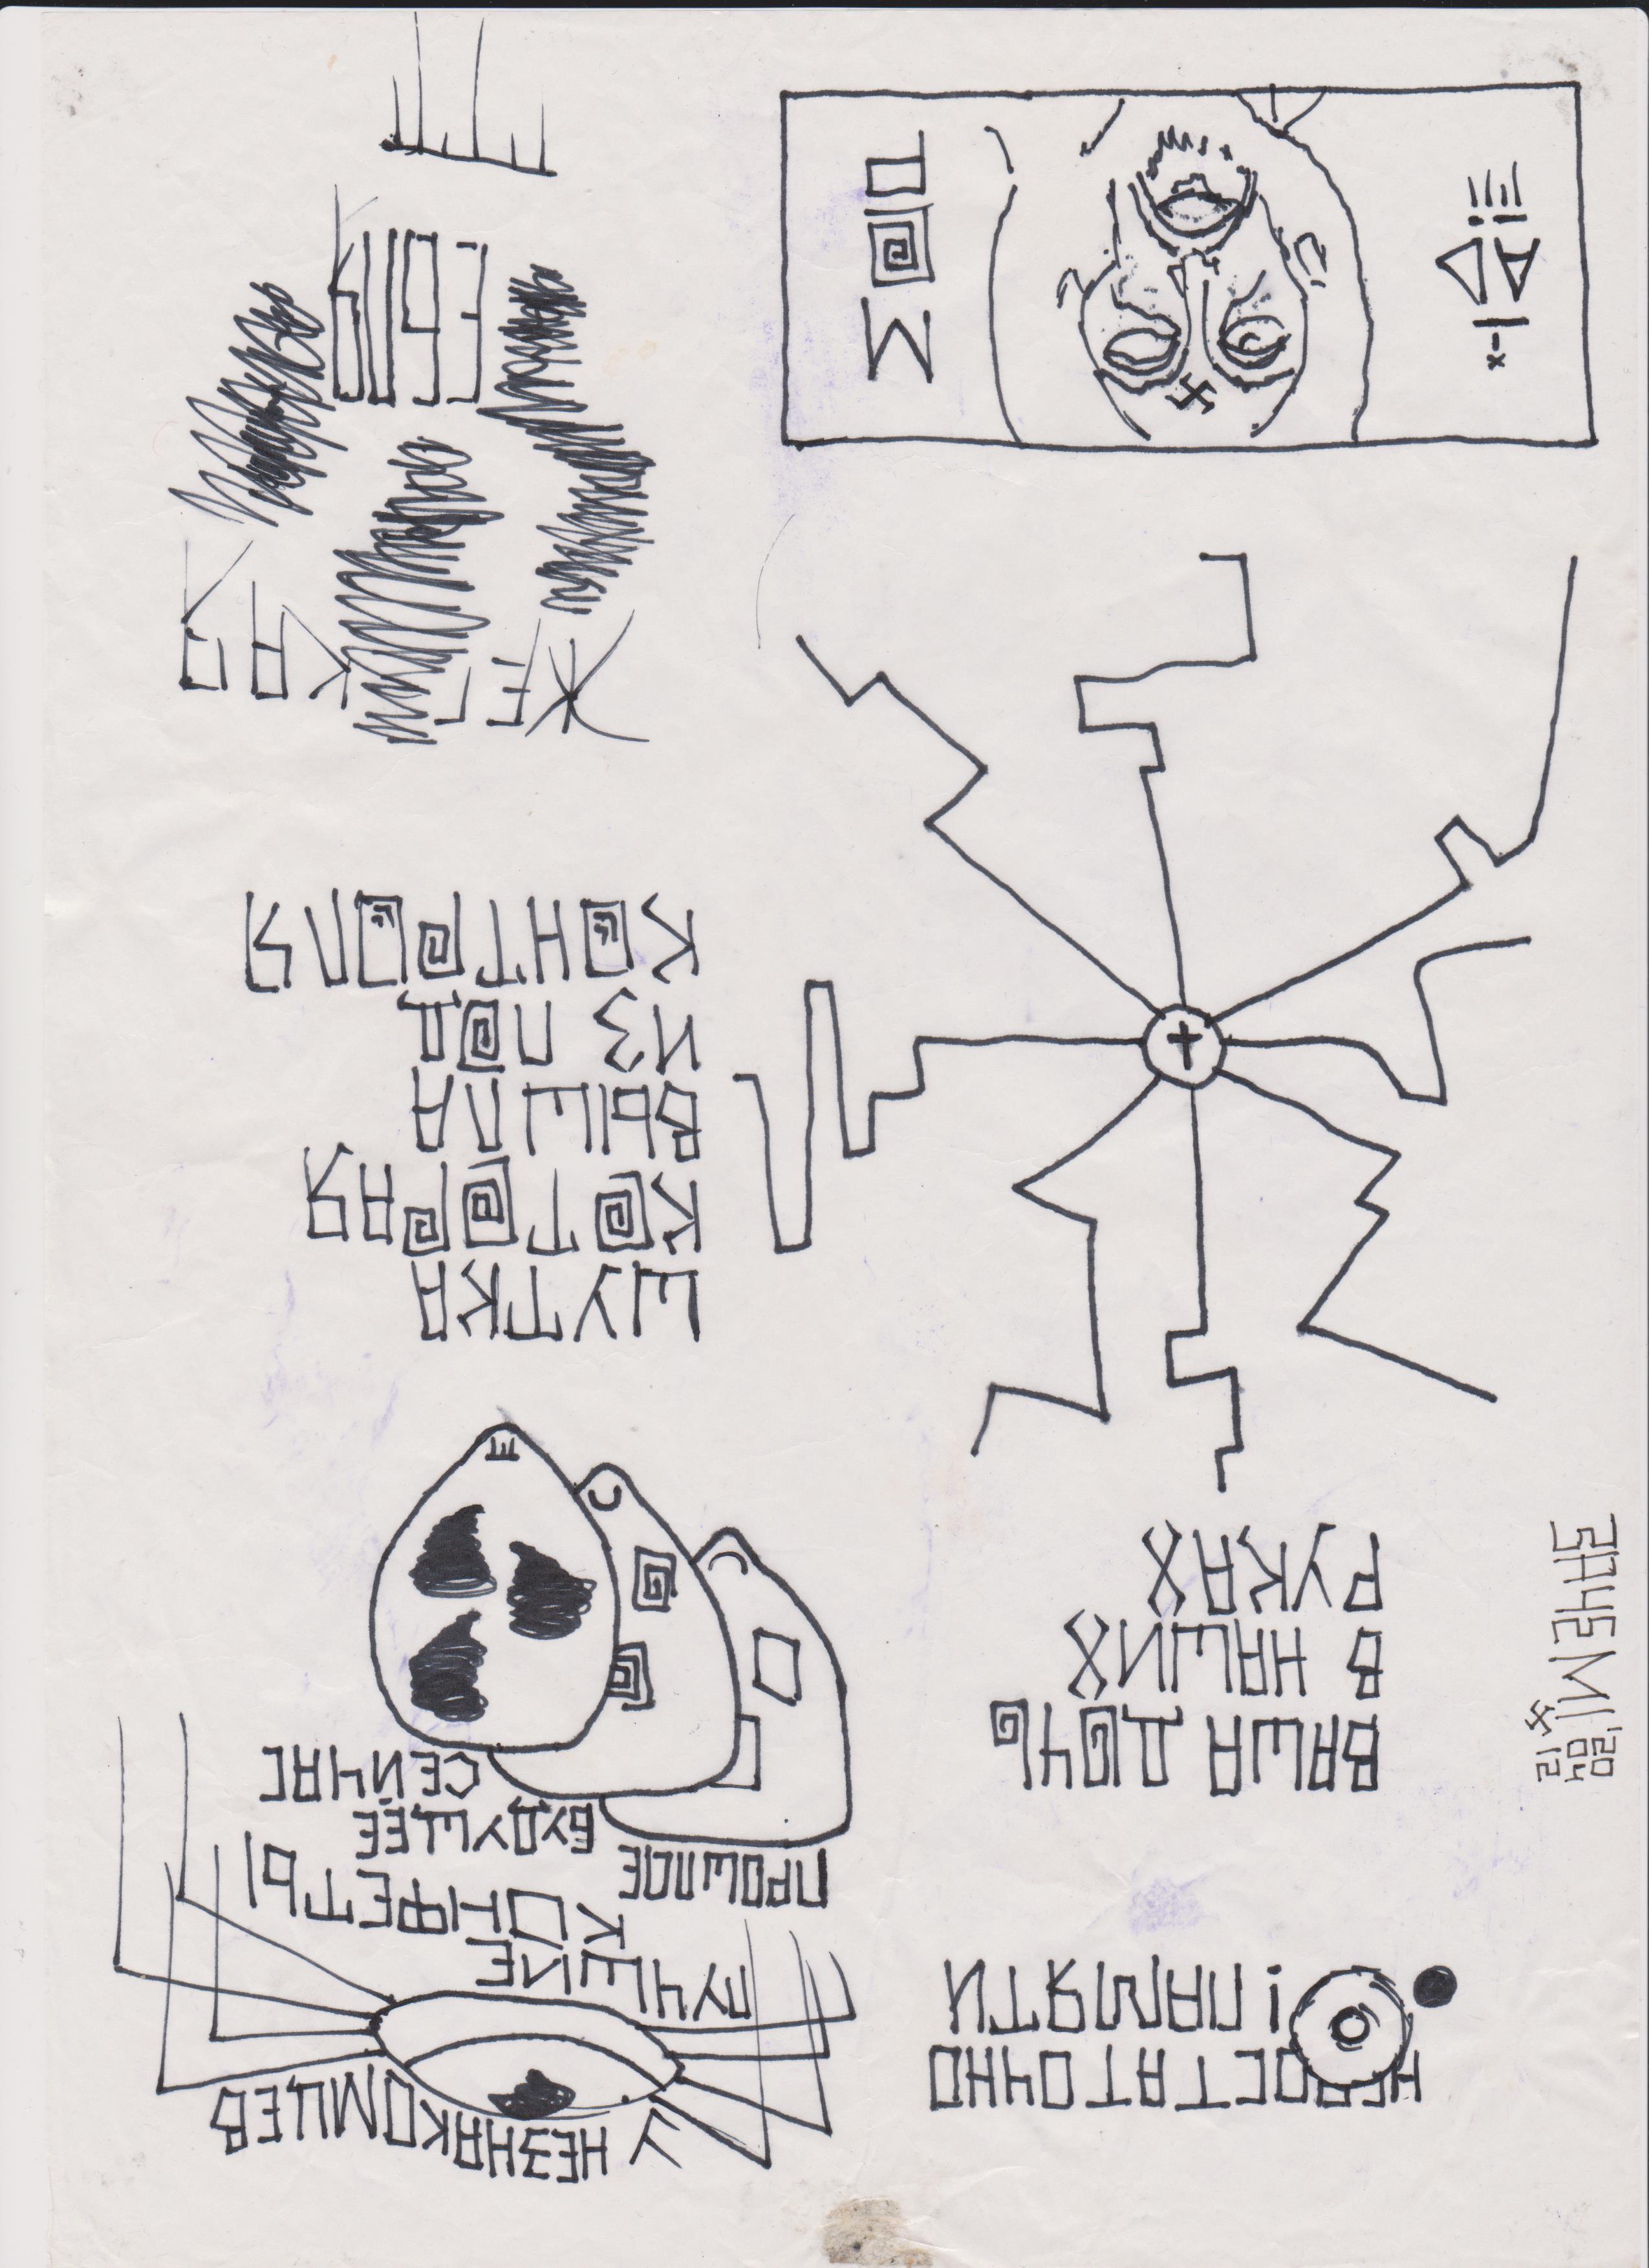 НЕДОСТАТОЧНО
! ПАМЯТИ
У НЕЗНАКОМЦЕВ
ЛУЧШИЕ
КОНФЕТЫ
ПРОШЛОЕ
БУДУЩЕЕ
СЕЙЧАС
ВАША ДОЧЬ
В НАШИХ
РУКАХ
ЗАЧЕМ
ШУТКА
КОТОРАЯ
ВЫШЛА
ИЗ ПОД
КОНТРОЛЯ
ЕБЛЯ
AD
МОР